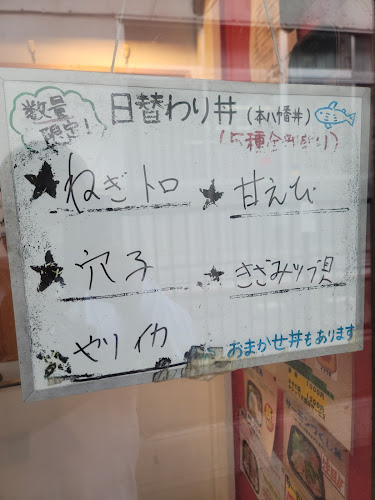 数量
限定!
日替わり丼(本八幡丼)
(5種全部盛り)
ねぎトロ
甘えび
穴子
きざみツブ貝
ヤリイカ
おまかせ丼もあります